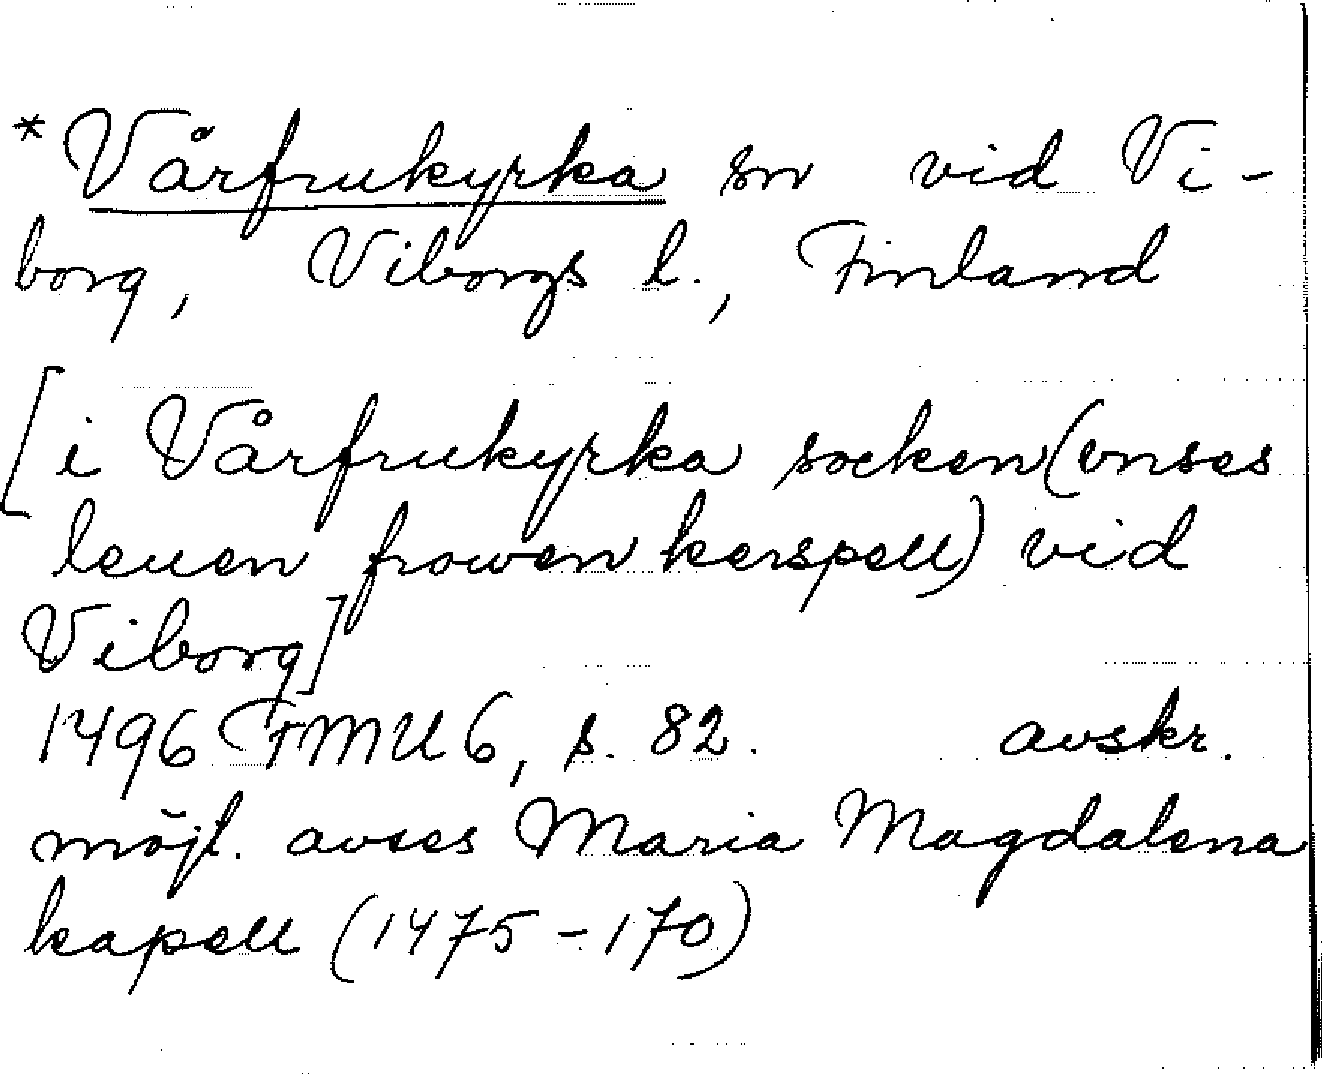 *Vårfrukyrka sn vid Vi-
borg, Viborgs l., Finland
[i Vårfrukyrka socken (vnses
leuen frowen kerspell) vid
Viborg]
1496 FMU 6, s. 82. avskr.
möjl. avses Maria Magdalena
kapell (1475-170)